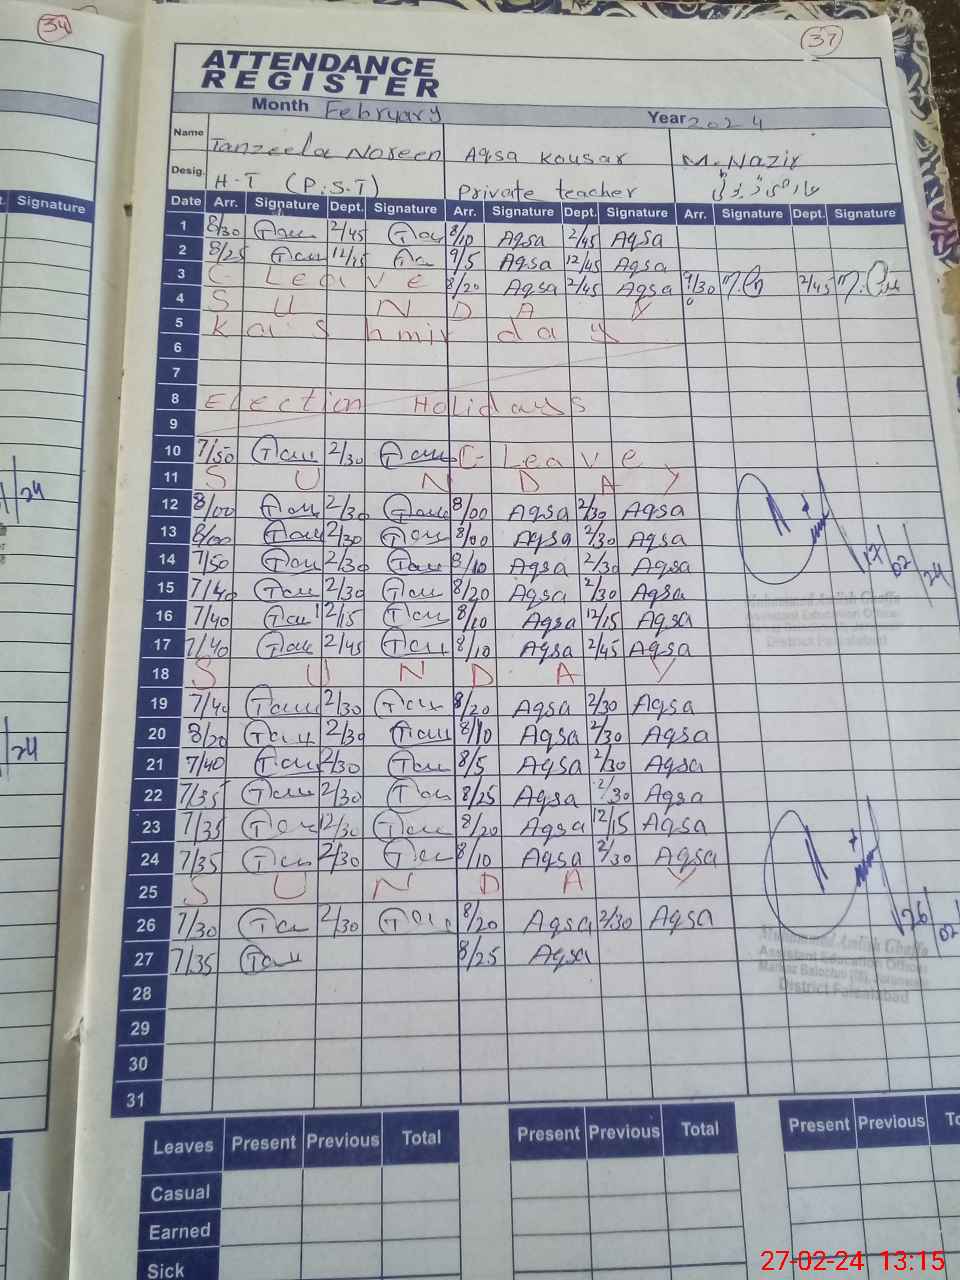 34
37
ATTENDANCE
REGISTER
Month February Year 2024
Name Tanzeela Noreen Aqsa Kousar M. Nazir
Desig. H-T (P.S.T) Private teacher
Signature
Date Arr. Signature Dept. Signature Arr. Signature Dept. Signature Arr. Signature Dept. Signature
1 8/30 Tau 2/45 Tau 8/10 Aqsa 2/45 Aqsa
2 8/25 Tau 12/15 9/5 Aqsa 12/45 Aqsa
3 C-Leave 8/20 Aqsa 2/45 Aqsa 9/30 2/45
4 SUNDAY
5 Kaishmir day
6
7
8 Election Holidays
9
10 7/50 Tau 2/30 Tau C-Leave
11 SUNDAY
12 8/00 Tau 2/30 Tau 8/00 Aqsa 2/30 Aqsa
13 8/00 Tau 2/30 Tau 8/00 Aqsa 2/30 Aqsa
14 7/50 Tau 2/30 Tau 8/10 Aqsa 2/30 Aqsa
15 7/40 Tau 2/30 Tau 8/20 Aqsa 2/30 Aqsa
16 7/40 Tau 12/15 Tau 8/10 Aqsa 12/15 Aqsa
17 7/40 Tau 2/45 Tau 8/10 Aqsa 2/45 Aqsa
17/02/24
18 SUNDAY
19 7/40 Tau 2/30 Tau 8/20 Aqsa 2/30 Aqsa
20 8/20 Tau 2/30 Tau 8/10 Aqsa 2/30 Aqsa
21 7/40 Tau 2/30 Tau 8/5 Aqsa 2/30 Aqsa
22 7/35 Tau 2/30 Tau 8/25 Aqsa 2/30 Aqsa
23 7/35 Tau 12/30 Tau 8/20 Aqsa 12/15 Aqsa
24 7/35 Tau 2/30 Tau 8/10 Aqsa 2/30 Aqsa
25 SUNDAY
26 7/30 Tau 2/30 Tau 8/20 Aqsa 2/30 Aqsa
26/02/
27 7/35 Tau 8/25 Aqsa
Assistant Education Officer
28
29
30
31
Leaves Present Previous Total Present Previous Total Present Previous
Casual
Earned
Sick
27-02-24 13:15